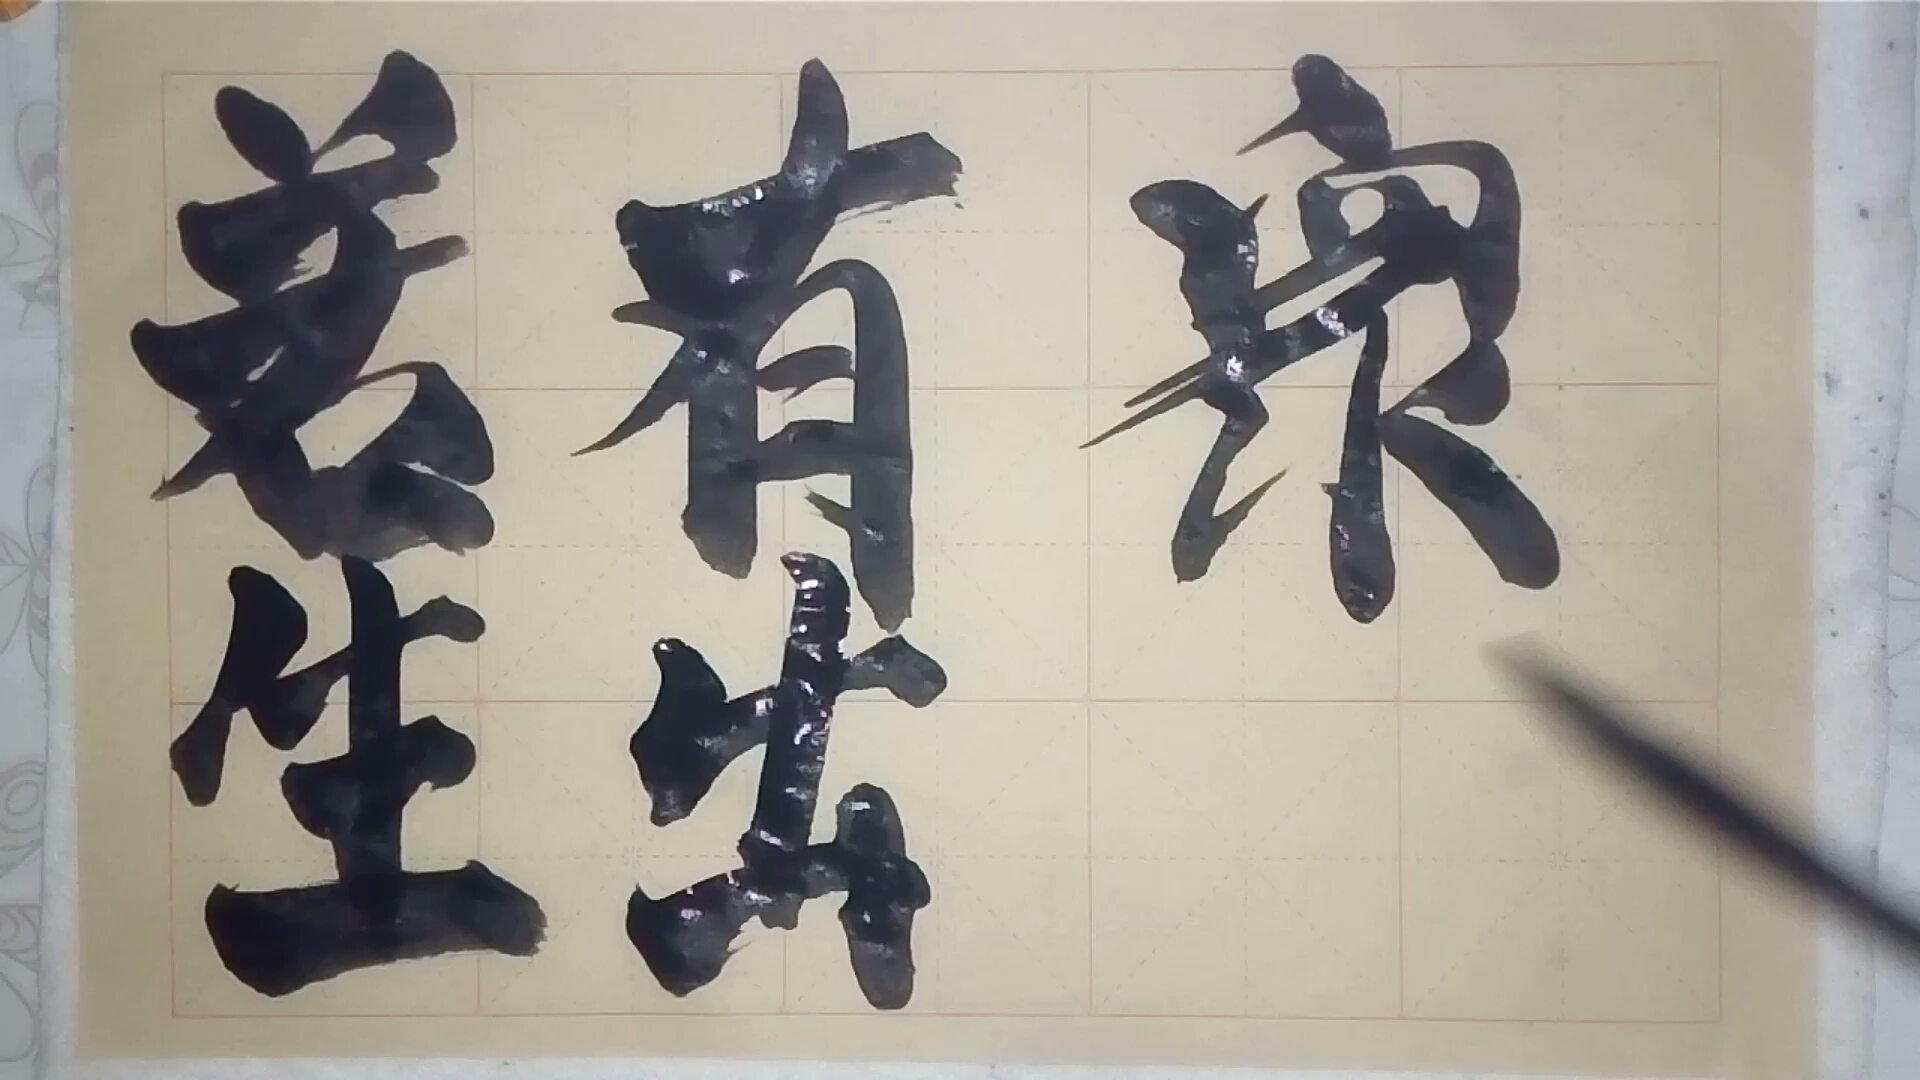 有出
若生